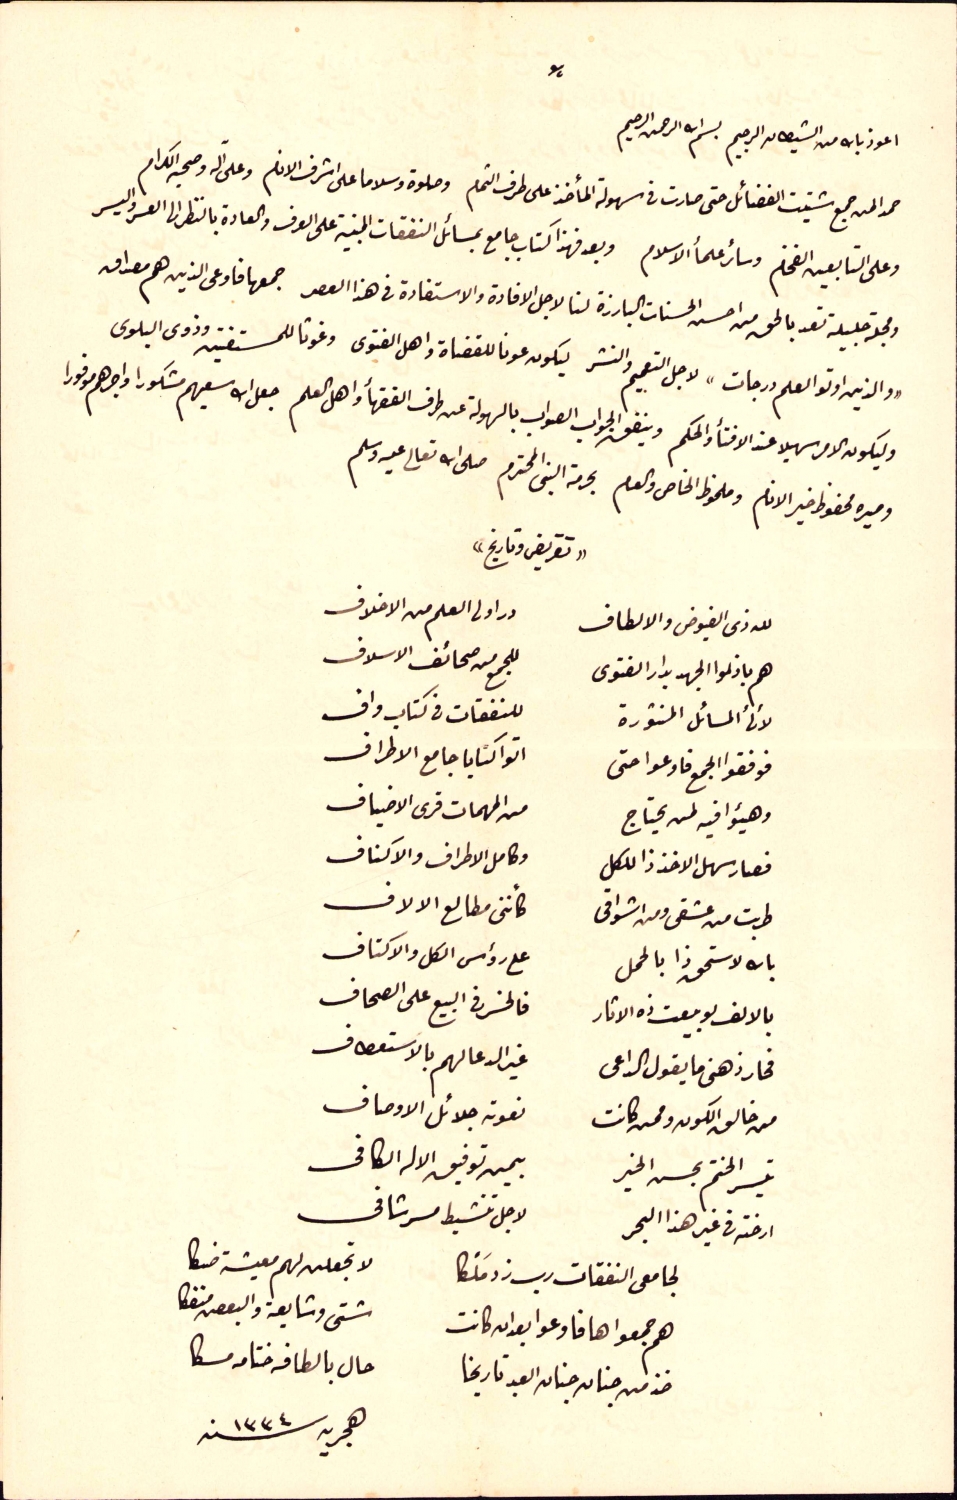 اعوذ بالله من الشيطان الرجيم بسم الله الرحمن الرحيم
حمدا لمن جمع شتيت الفضائل حتى صارت فى سهولة المأخذ على طرف الثمام وصلوة وسلاما على اشرف الانام وعلى آله وصحبه الكرام
وعلى التابعين الفخام وسائر علمأ الاسلام وبعد فهذا كتاب جامع بمسائل النفقات المبنية على العرف والعادة بالنظر الى العسر واليسر
ومجلة جليلة تعد بالحق من احسن الحسنات البارزة لنا لاجل الافادة والاستفادة فى هذا العصر جمعها فاوعى الذين هم مصداق
«والذين اوتوا العلم درجات» لاجل التعميم والنشر ليكون عونا للقضاة واهل الفتوى وغوثا للمستفتين وذوى البلوى
وليكون الامر سهيلا عند الافتأ والحكم وينفق الجواب الصواب بالسهولة عن طرف الفقهأ واهل العلم جعل الله سعيهم مشكورا واجرهم موفورا
وصيره محفوظ خير الانام وملحوظ الخاص والعام بحرمة النبى المحترم صلى الله تعالى عليه وسلم
«تقريض وتاريخ»
لله ذى الفيوض والالطاف در اولى العلم من الاخلاف
هم باذلوا الجهد بدار الفتوى للجمع من صحائف الاسلاف
لآلئ المسائل المنثورة للنفقات فى كتاب واف
فوفقوا الجمع فاوعوا حتى اتوا كتابا جامع الاطراف
وهيئوا فيه لمن يحتاج من المهمات قرى الاضياف
فصار سهل الاخذ ذا للكل وكامل الاطراف والاكناف
طربت من عشقى ومن اشواقى كأننى مطالع الالاف
بالله لاستحق ذا بالحمل على رؤس الكل والاكتاف
بالالف لو بيعت ذه الاثار فالخسر فى البيع على الصحاف
فحار ذهنى ما يقول الداعى غير الدعا لهم بالاستعطاف
من خالق الكون ومن كانت نعوته جلائل الاوصاف
تيسر الختم بحسن الخير بيمن توفيق الاله الكافى
ارخته فى غير هذا البحر لاجل تنشيط مسر شافى
لجامعى النفقات رب زد ملكا لا تجعلن لهم معيشة ضنكا
هم جمعوها فاوعوا بعد ان كانت شتى وشايعة والبعض منفكا
خذ من جنان جنان العبد تاريخا حال بالطافه ختامه مسكا
هجريه سنه ١٣٣٤